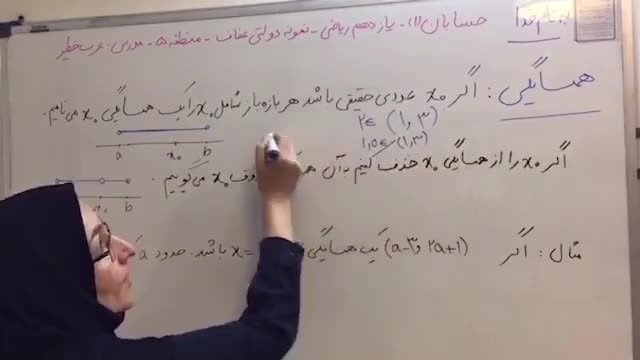 به نام خدا
حسابان (۱) - یازدهم ریاضی - نمونه دولتی عفاف - منطقه ۵ - مدرس: عرب خطیر
همسایگی : اگر x₀ عددی حقیقی باشد هر بازه باز شامل x₀ را یک همسایگی x₀ می نامیم.
۲∈ (۱,۳)
a x₀ b
۱,۵∈(۱,۳)
اگر x₀ را از همسایگی x₀ حذف کنیم به آن x₀ می گوییم.
a x₀ b
مثال : اگر (a-۳ و ۲a+۱) یک همسایگی x= باشد. حدود a